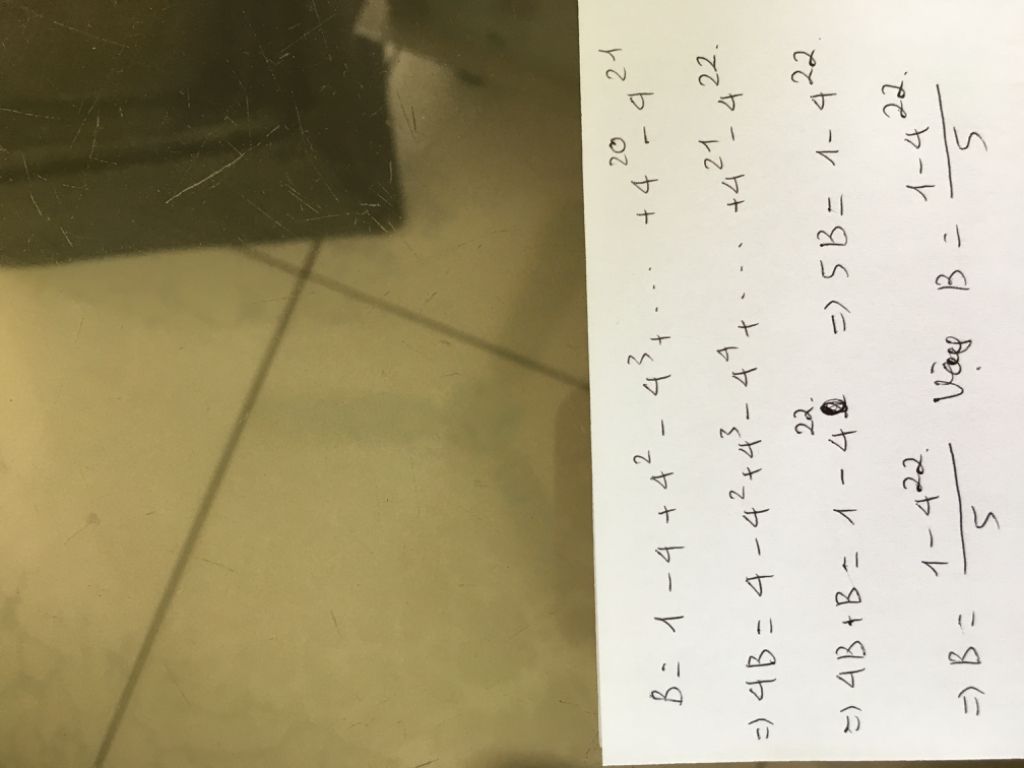 B = 1 - 4 + 4² - 4³ + ... + 4²⁰ - 4²¹
=) 4B = 4 - 4² + 4³ - 4⁴ + ... + 4²¹ - 4²².
=) 4B + B = 1 - 4²². =) 5B = 1 - 4²².
=) B = (1 - 4²².)/5 Vậy B = (1 - 4²².)/5